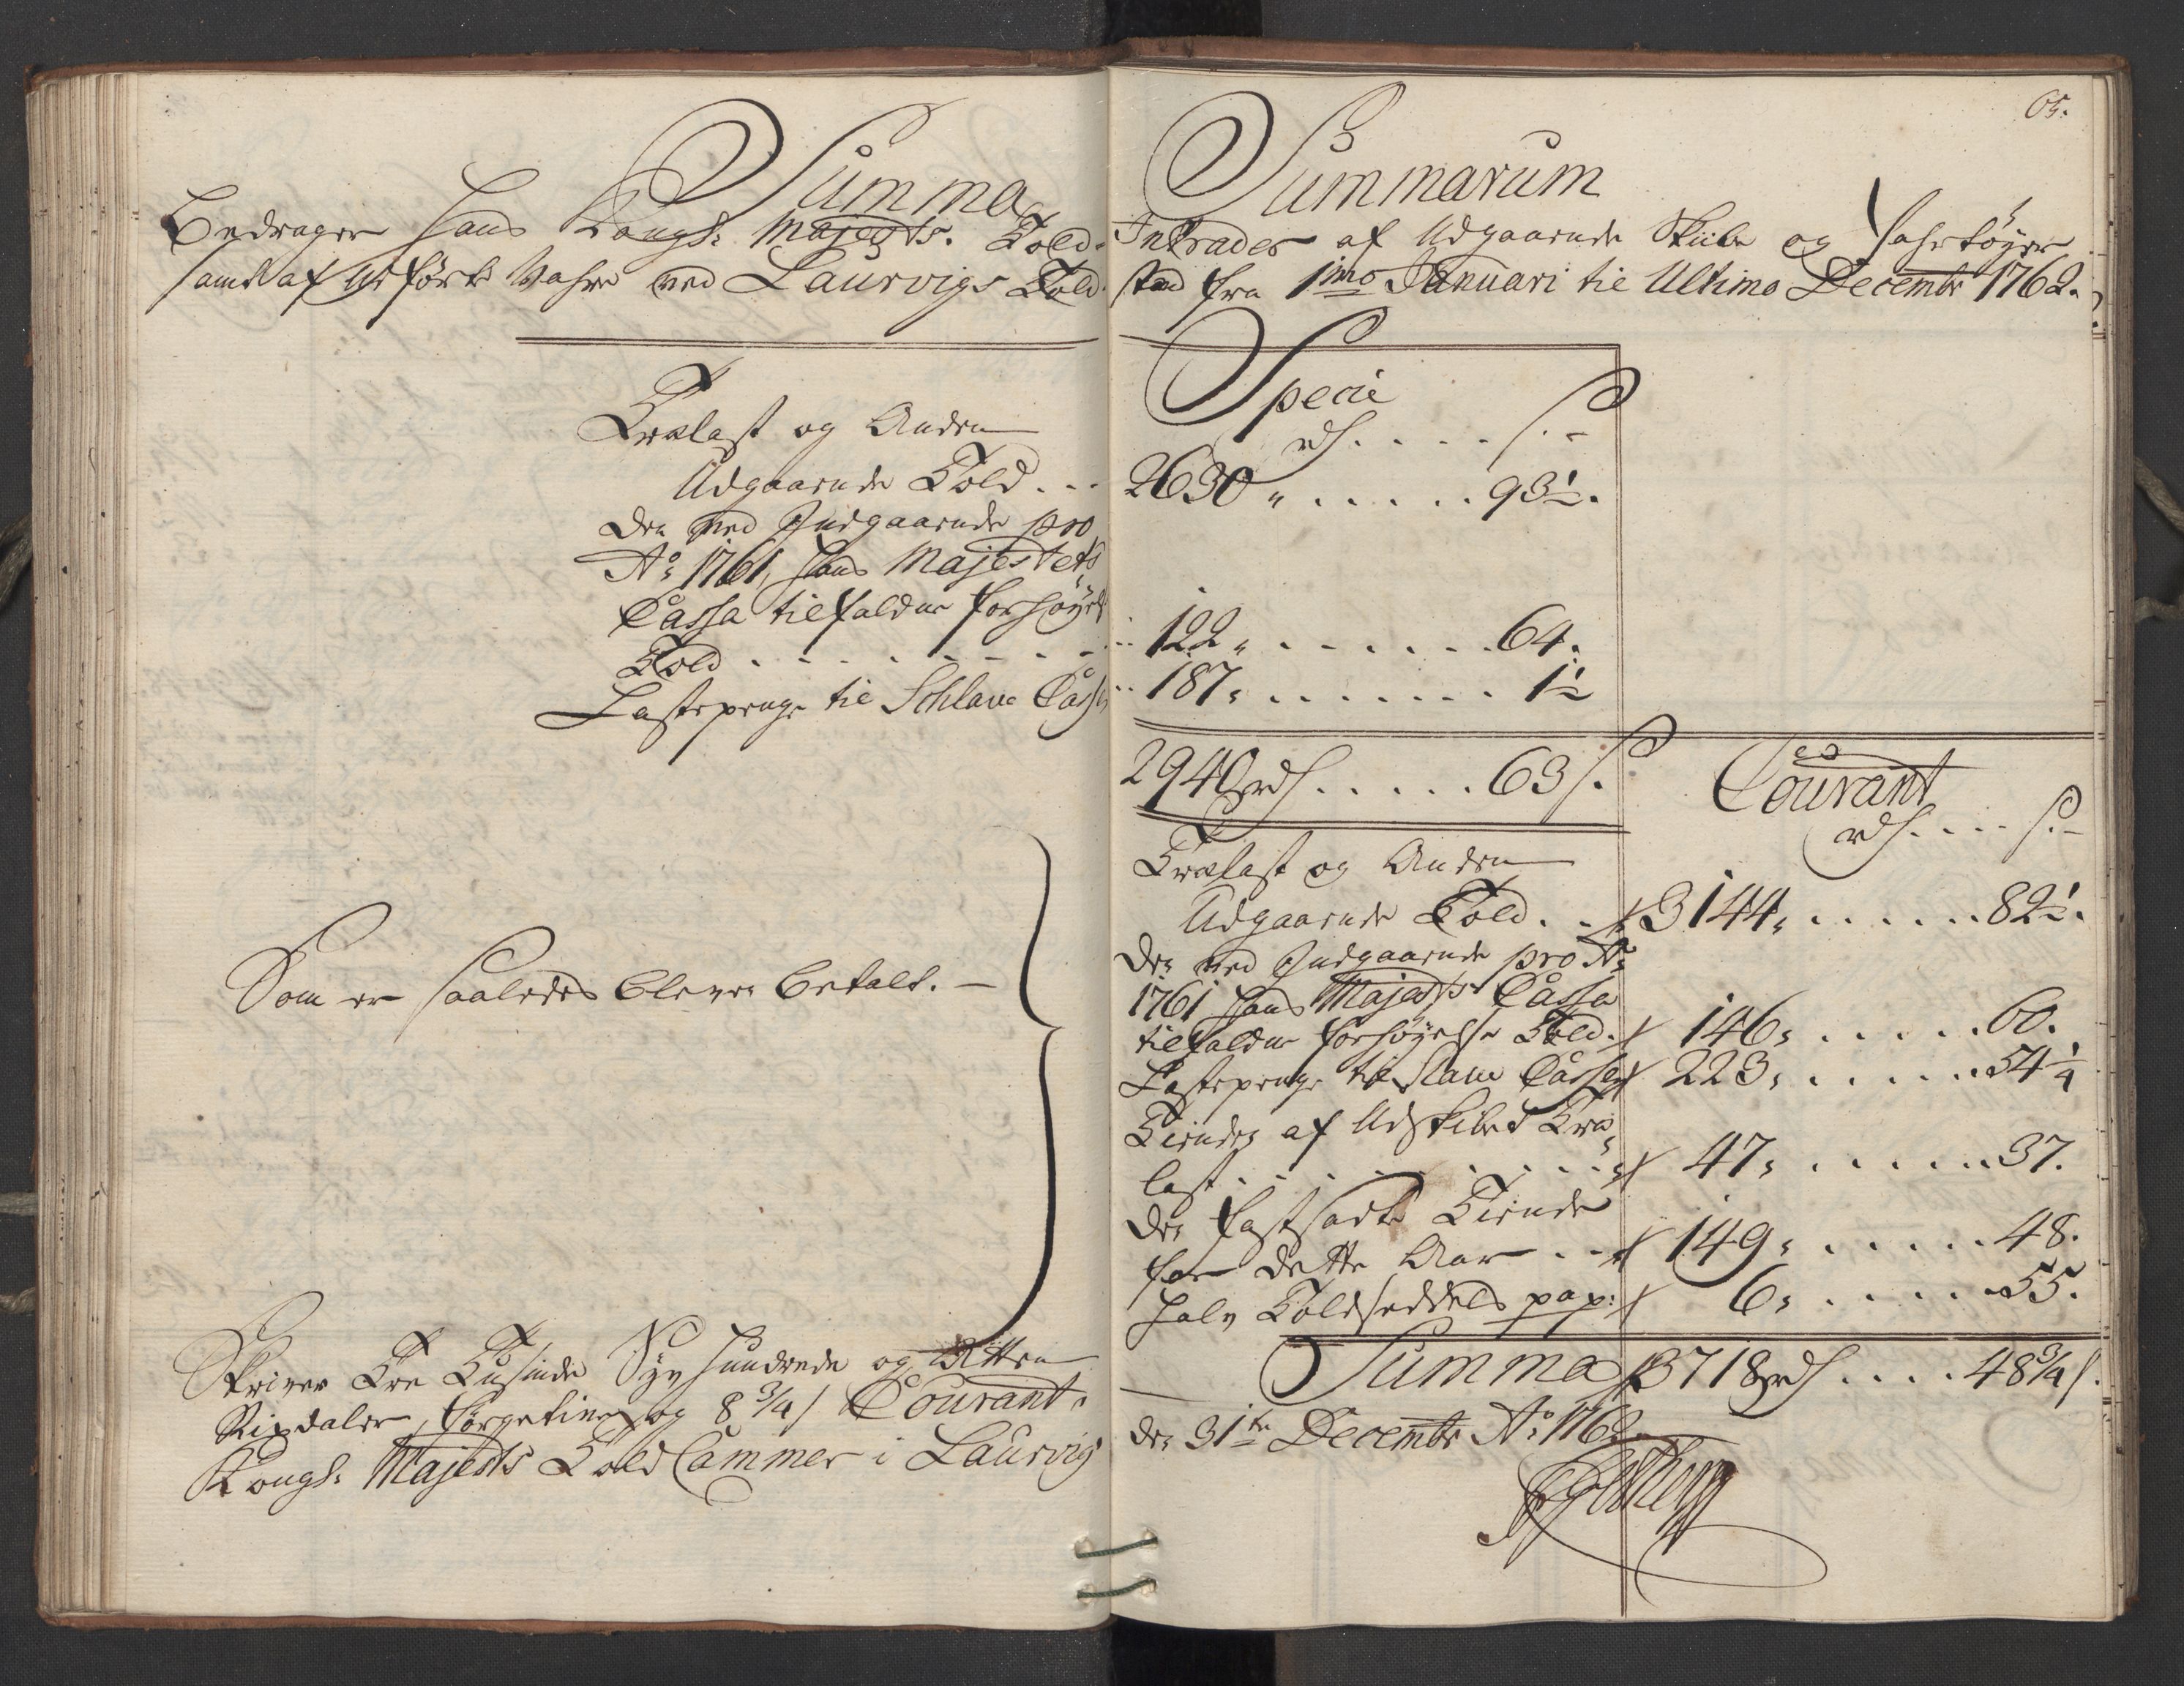 65.
Summa Summarum
Bedrager Hans Kongl: Majests. Told-Intrader af Udgaaende Skiibe og Fahrtøyer
samt af Udførte Wahre ved Laurvigs Told-stæd fra 1mo Januari til Ultimo Decembr 1762.
Specie
rd. . . . . s. -
Trælast og Anden
Udgaaende Told . . . 2630 " . . . . . . 93 1/2.
Den ved Indgaaende pro
Ao: 1761, Hans Majestets
Cassa tilfaldne Forhøyelse
Told . . . . . . . . . . 122 " . . . . . . . 64.
Lastepenge til Schlave Cassen . . 187 " . . . . . . . 1 1/2
2940 rd . . . . . 63 s.
Courant
rd. . . . . s. -
Trælast og Anden
Udgaaende Told . . 3144 " . . . . . . 82 1/2.
Den ved Indgaaende pro Ao:
1761 Hans Majests Cassa
tilfaldne forhøyelse Told. 146 " . . . . . . 60.
Lastepenge til Slave Cassen 223 " . . . . . . 54 1/4
Tiende af Udskibed Træ-
last . . . . . . . . . 47 " . . . . . . 37.
Den fastsadte Tiende
for dette Aar . . . 149 " . . . . . . 48.
Halv Toldseddels pap: 6 " . . . . . . 55.
Som er saaledes bleven betalt. -
Summa 3718 rd . . . . 48 3/4 s.
Skriver Tre Tusinde Syv Hundrede og Atten
Rixdaler, Førgetive og 8 3/4 s Courant.
Kongl: Majests Told Cammer i Laurvig den 31te Decembr Ao: 1762.